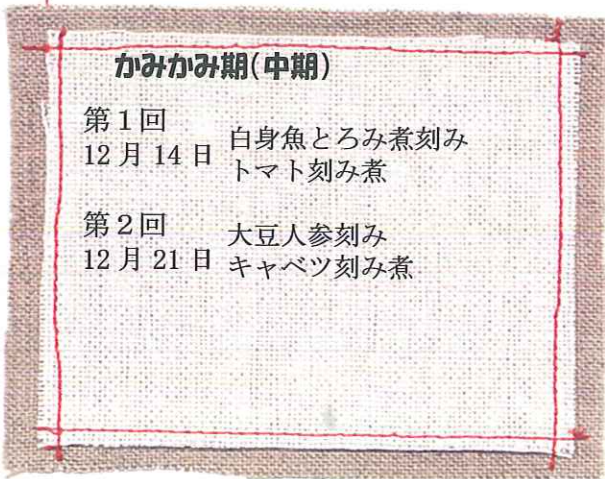 かみかみ期(中期)
第1回
12月14日
白身魚とろみ煮刻み
トマト刻み煮
第2回
12月21日
大豆人参刻み
キャベツ刻み煮